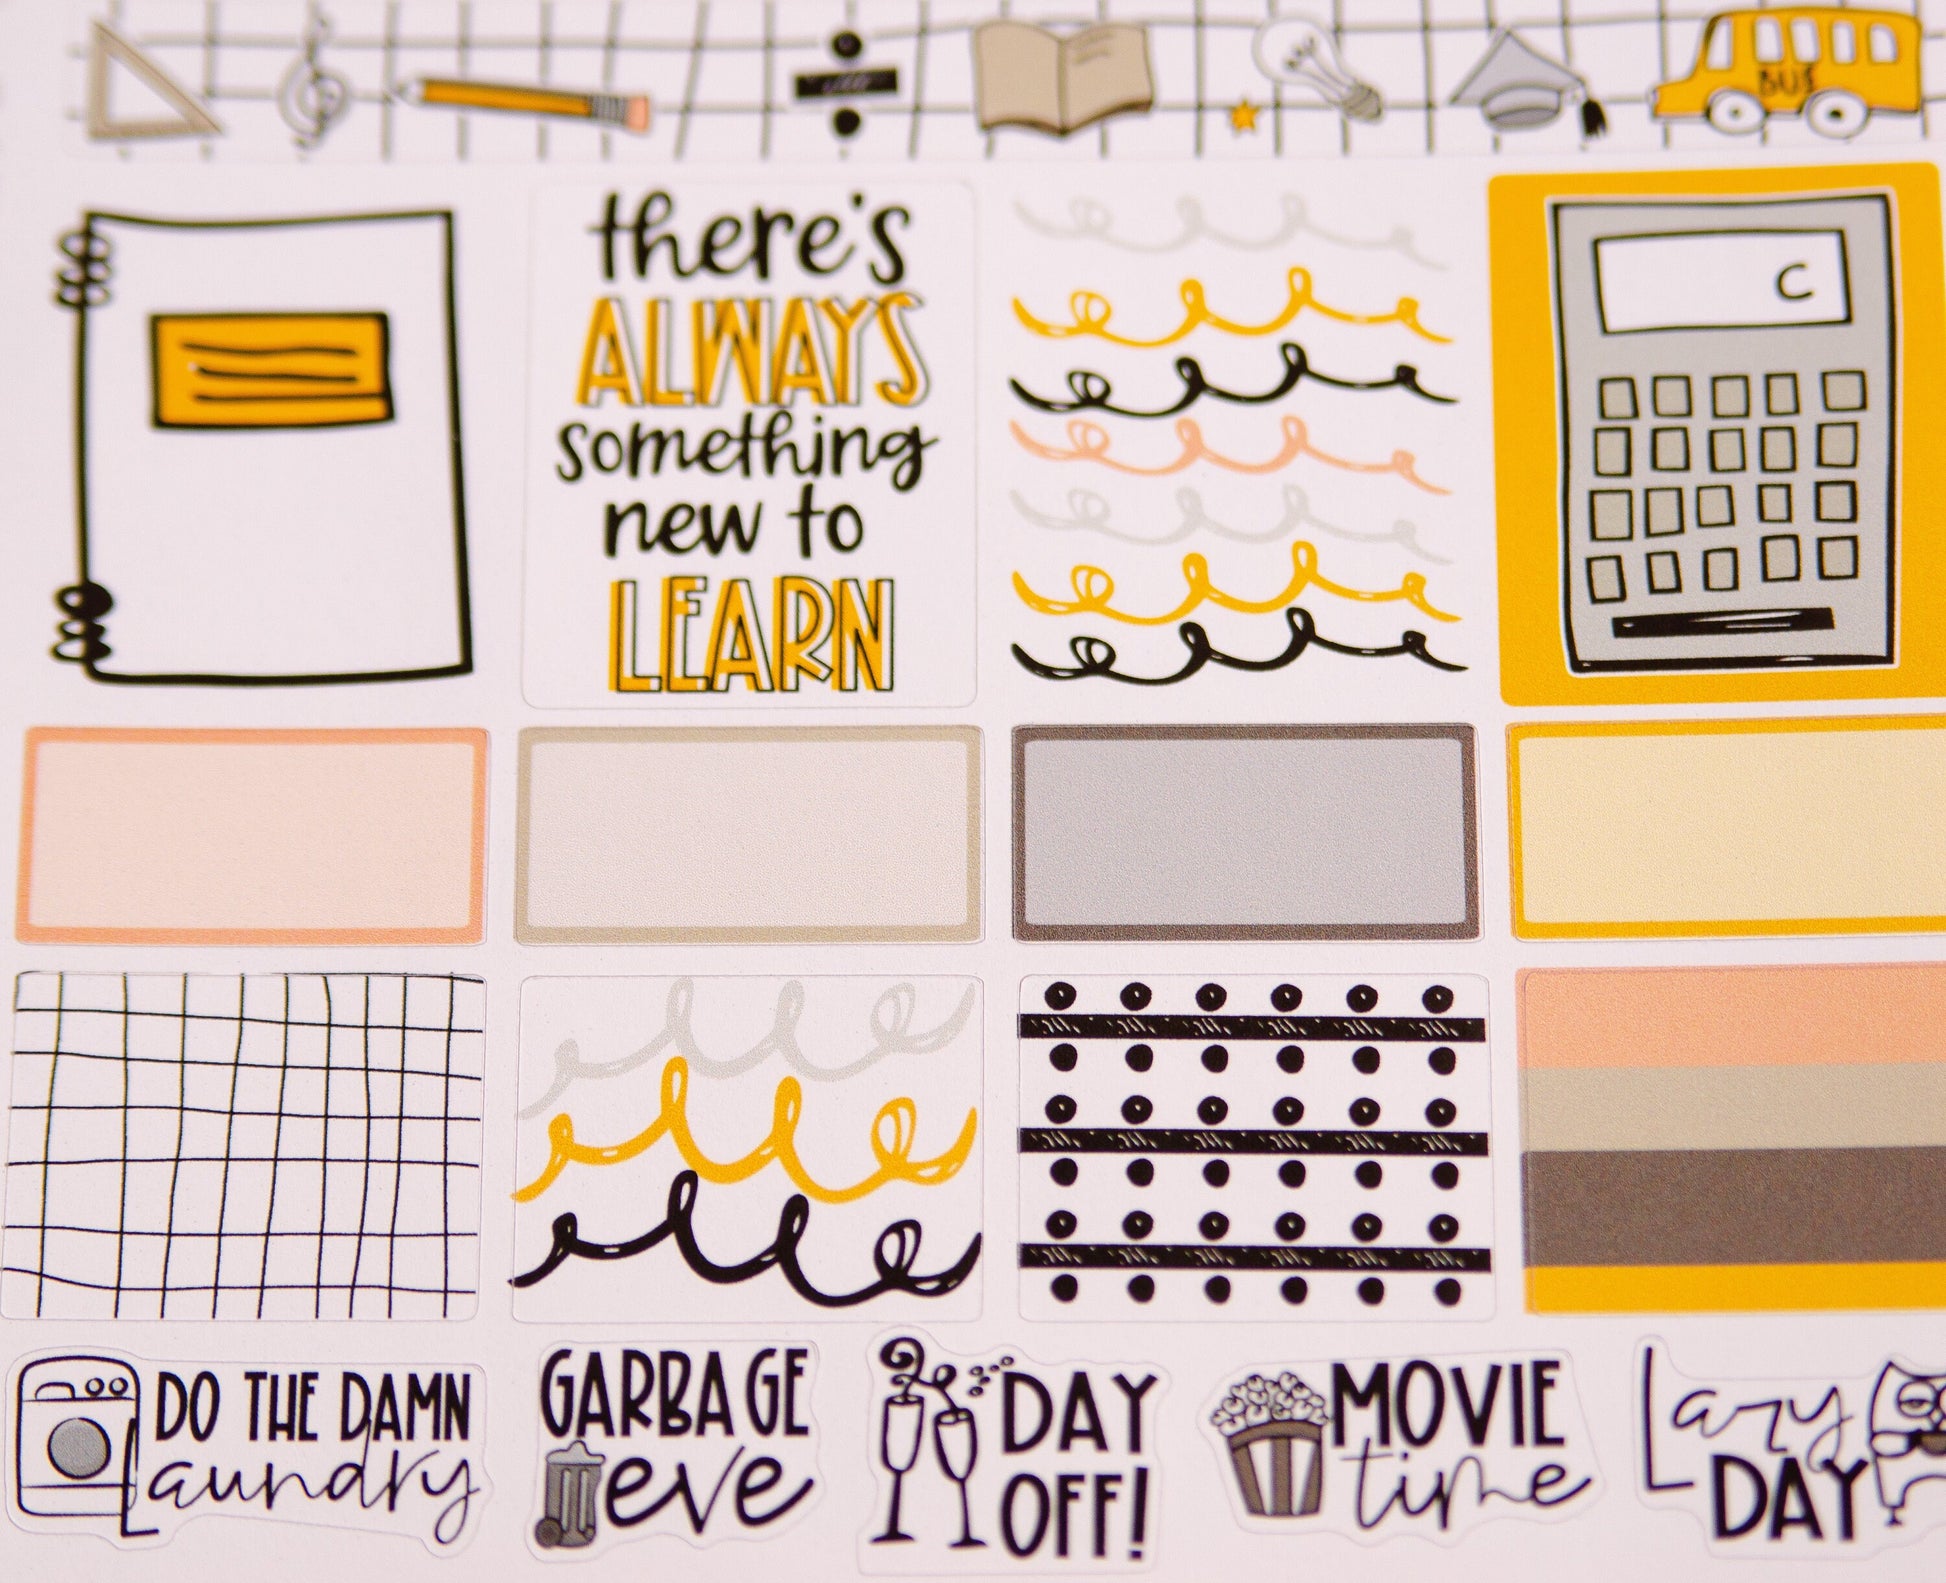 BUS
there's
ALWAYS
something
new to
LEARN
C
DO THE DAMN
Laundry
GARBAGE
eve
DAY
OFF!
MOVIE
time
Lazy
DAY